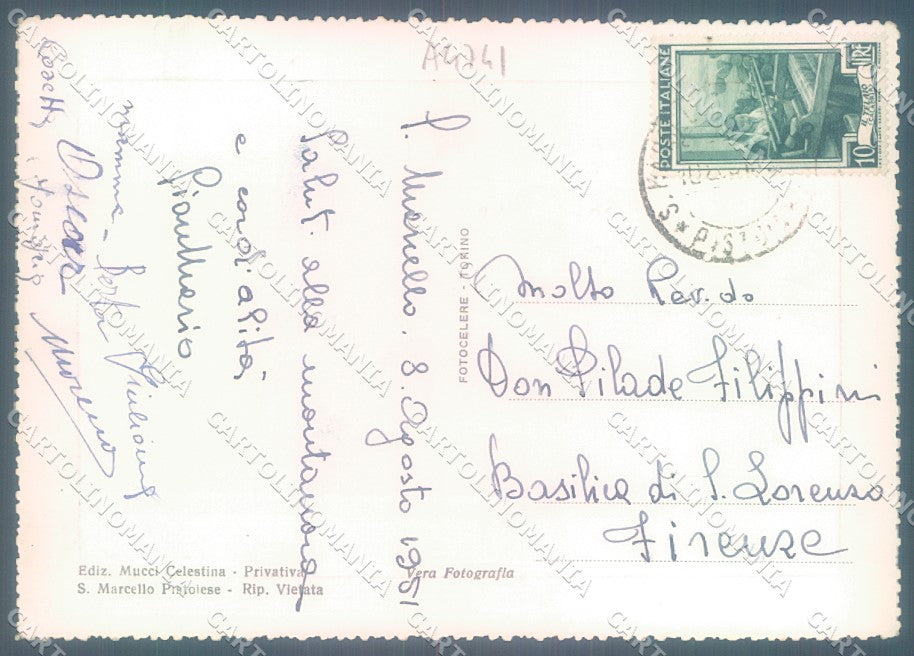 A4741
POSTE ITALIANE
10 LIRE
PISTOIA
S. Marcello. 8. Agosto 1951
Saluti alla montanara
e cordialità
GianMario
mamma
Oscar
Giuliana
Moreno
Molto Rev.do
Don Pilade Filippini
Basilica di S. Lorenzo
Firenze
FOTOCELERE - TORINO
Ediz. Mucci Celestina - Privativa
S. Marcello Pistoiese - Rip. Vietata
Vera Fotografia
CARTOLINOMANIA